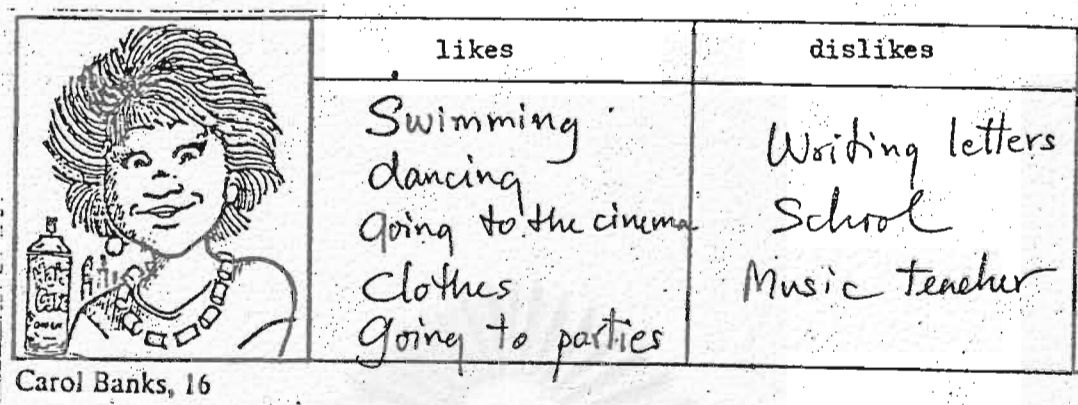 likes
dislikes
Swimming
dancing
going to the cinema
Clothes
going to parties
Writing letters
School
Music teacher
Carol Banks, 16